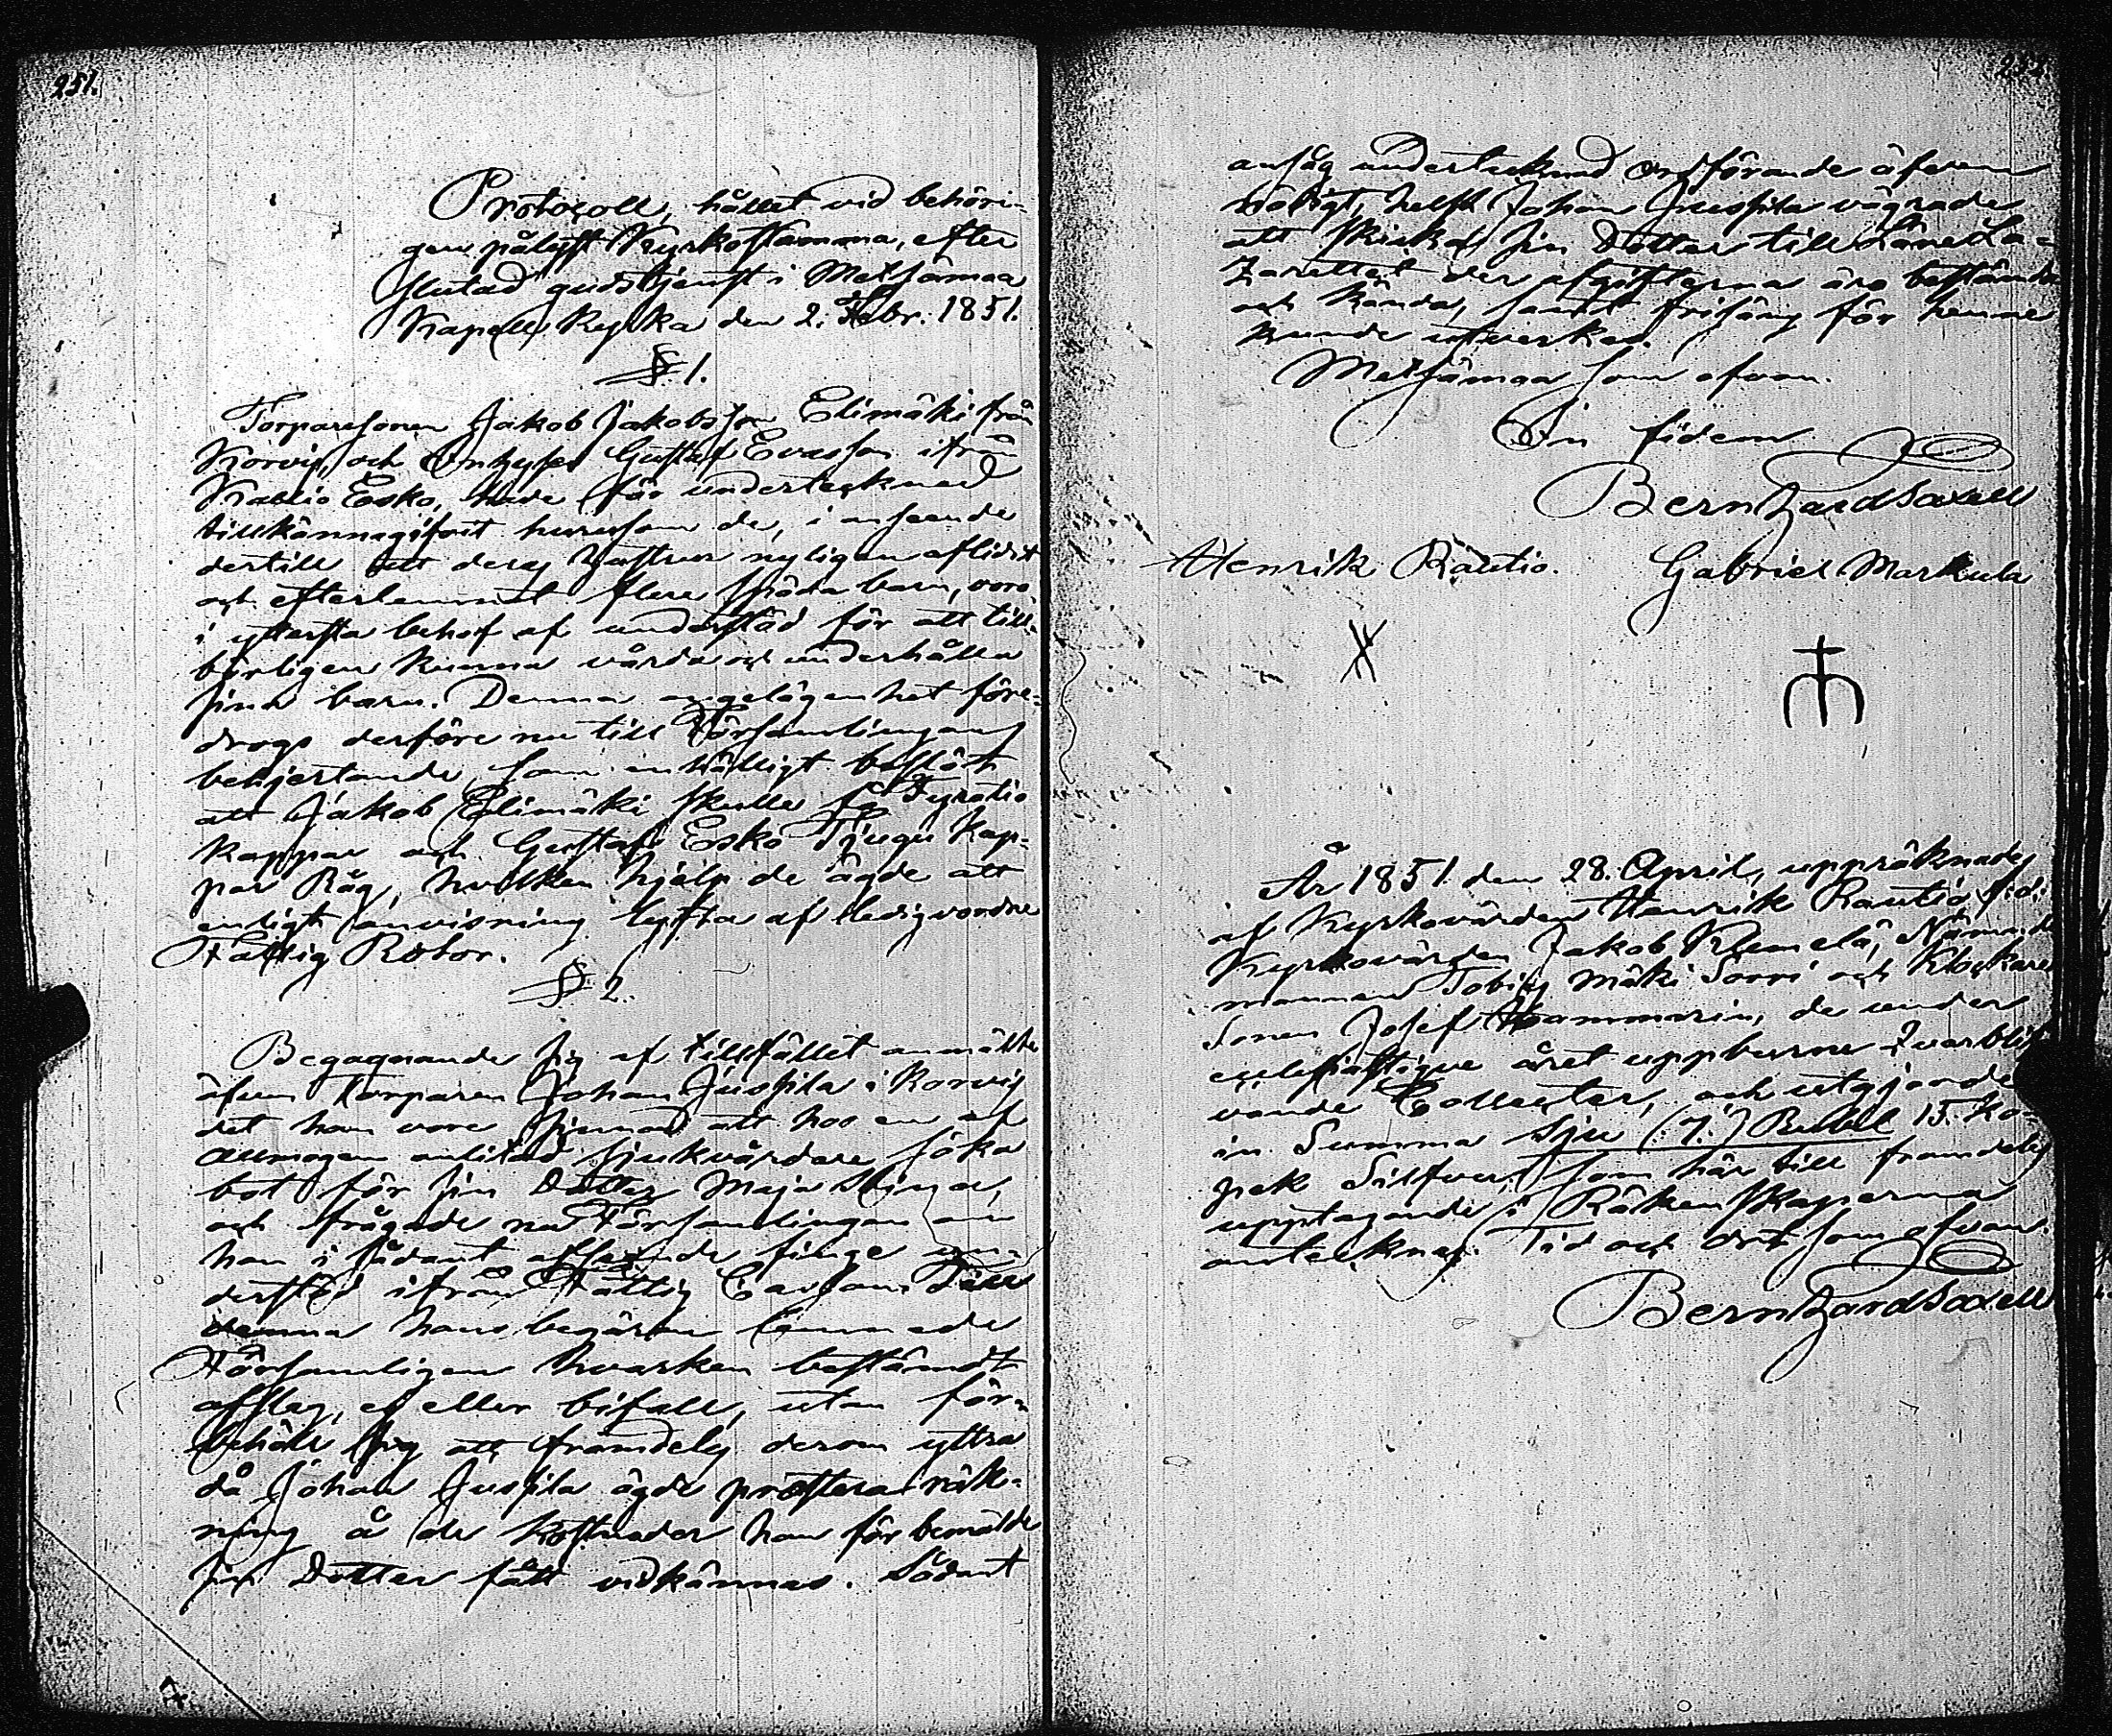 251.
Protocoll, hållet vid behöri-
gen pålyst Kyrkostämma, efter
slutad gudstjenst i Metsämaa
Kapells Kyrka den 2. Febr. 1851.
§. 1.
Torparesonen Jakob Jakobsson Elimäki från
Korvis, och Gustaf Evasson ifrån
Esko, hade för undertecknad
tillkännagifvit hurusom de, i anseende
dertill att deras hustrur nyligen aflidit
och efterlemnat flere späda barn, voro
i yttersta behof af understöd för att till-
börligen kunna vårda och underhålla
sina barn. Denna angelägenhet före-
drogs derföre nu till Församlingens
behjertande, som enhälligt beslöt
att Jakob Elimäki skulle få Fyratio
kappar och Gustaf Esko Tjugu Kap-
par Råg, hvilken hjelp de ägde att
enligt anvisning lyfta af ledigvordne
Fattig Rotor.
§ 2.
Begagnande sig af tillfället anmälte
äfven Torparen Johan Jussila i Korvis
det han vore sinnad att hos en af
allmogen anlitad sjukvårdare söka
bot för sin Dotter Maja Stina,
och frågade nu Församlingen om
han i sådant afseende finge un-
derstöd ifrån Fattig Cassan. Till
denna hans begäran lemnade
Församligen hvarken bestämdt
afslag, ej eller bifall, utan för-
behöll sig att framdeles derom yttra
då Johan Jussila ägde prestera räk-
ning å de kostnader han för bemälde
sin Dotter fått vidkännas. Sådant
252
ansåg undertecknad Ordförande äfven
böligt, helst Johan Jussila vägrade
att skicka sin Dotter till Läne La-
zarettet der afgifterna äro bestämda
och kända, samt frisäng för henne
kunde utverkas.
Metsämaa som ofvan.
In fidem
Bernhard Saxell
Henrik Rautio. Gabriel Markula
År 1851. den 28. April, uppräknades
af Kyrkovärden Henrik Rautio, f.d.
Kyrkovärden Jakob Klemelä, Nämnde
mannen Tobias Mäki Sorri och Klockare
Sonen Josef Hammarin, de under
ecclesiastique året uppburne qvarblif
vande Collecter, och utgjorde
in Summa Sju (:7.:) Rubel 15. Ko-
pek Silfver, som här till framdeles
upptagande i Räkenskaperna
antecknas. Tid och ort som ofvan.
Bernhard Saxell